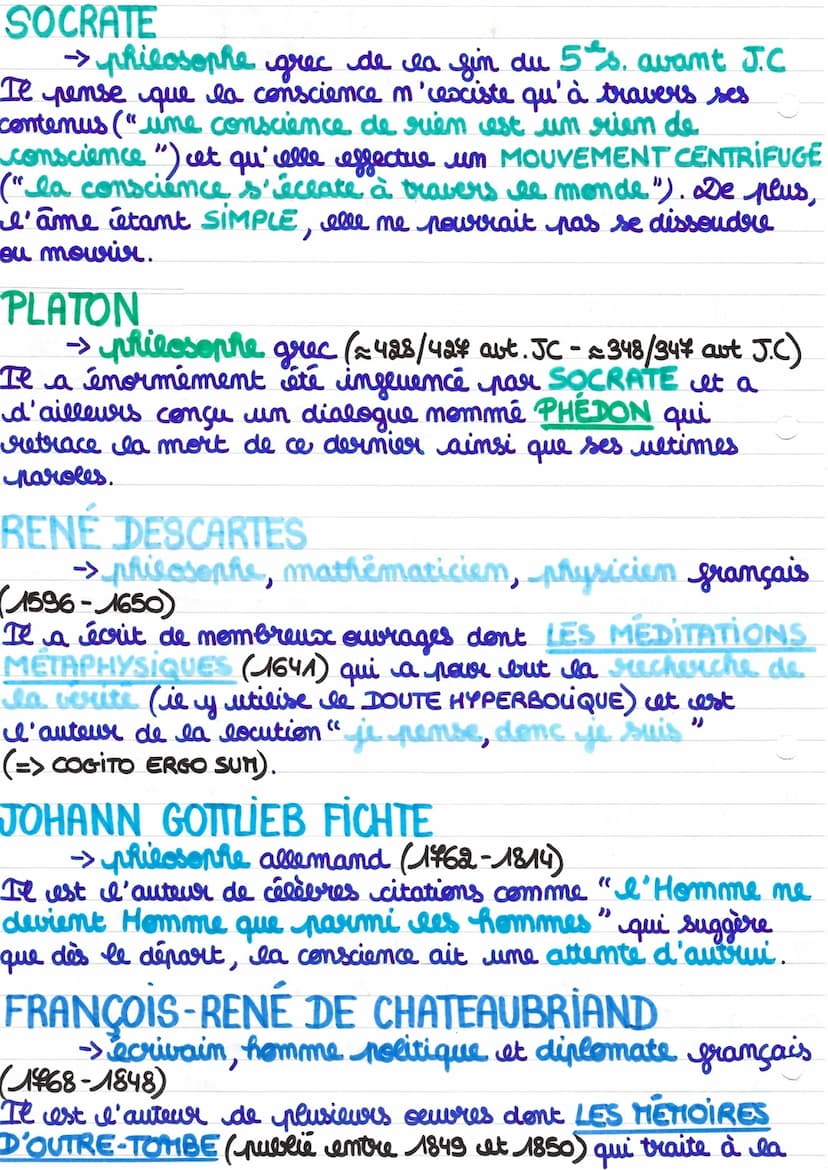 SOCRATE
→ philosophe grec de la fin du 5e s. avant J.C
Il pense que la conscience n'existe qu'à travers ses
contenus ("une conscience de rien est un rien de
conscience") et qu'elle effectue un MOUVEMENT CENTRIFUGE
("la conscience s'éclate à travers le monde"). De plus,
l'âme étant SIMPLE, elle ne pourrait pas se dissoudre
ou mourir.
PLATON
→ philosophe grec (≈428/427 avt. JC - ≈348/347 avt J.C)
Il a énormément été influencé par SOCRATE et a
d'ailleurs conçu un dialogue nommé PHÉDON qui
retrace la mort de ce dernier ainsi que ses ultimes
paroles.
RENÉ DESCARTES
→ philosophe, mathématicien, physicien français
(1596-1650)
Il a écrit de nombreux ouvrages dont LES MÉDITATIONS
MÉTAPHYSIQUES (1641) qui a pour but la recherche de
la vérité (il y utilise le DOUTE HYPERBOLIQUE) et est
l'auteur de la locution "je pense, donc je suis"
(=> COGITO ERGO SUM).
JOHANN GOTTLIEB FICHTE
→ philosophe allemand (1762-1814)
Il est l'auteur de célèbres citations comme "l'Homme ne
devient Homme que parmi les hommes" qui suggère
que dès le départ, la conscience ait une attente d'autrui.
FRANÇOIS-RENÉ DE CHATEAUBRIAND
→ écrivain, homme politique et diplomate français
(1768-1848)
Il est l'auteur de plusieurs oeuvres dont LES MÉMOIRES
D'OUTRE-TOMBE (publié entre 1849 et 1850) qui traite à la